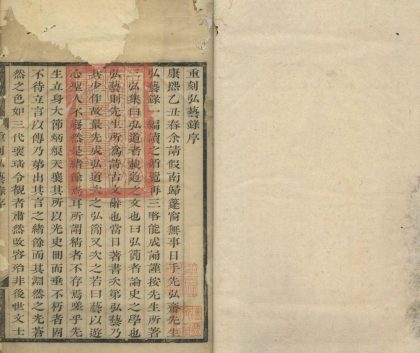 重刻弘藝錄序
康熙乙丑春余請假南歸蓬窗無事日手先弘齋先生
弘藝錄一編讀之循覽再三略能成誦謹按先生所著
三弘集曰弘道者載道之文也曰弘簡者論史之學也
弘藝則先生所為詩古文辭也當日著書次第弘藝乃
其少作故最先成弘道次之弘簡又次之若曰藝以遊
心聖人不廢然是緒餘焉耳所謂精者不存焉嗟乎先
生立身大節炳煥天壤其所以光史冊而垂不朽者固
不待立言以傳乃第出其言之緒餘而其淵然之光蒼
然之色如三代瓌璚令觀者肅然改容殆非後世文士
重刻弘藝錄序